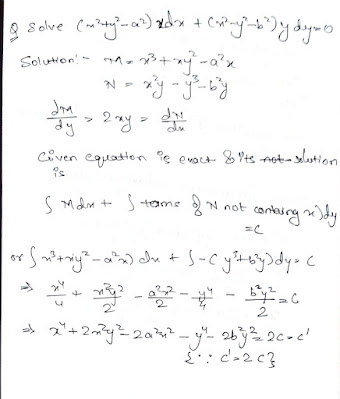 Q Solve (x²+y²-a²) x dx + (x²-y²-b²) y dy=0
Solution:- M = x³+xy²-a²x
N = x²y-y³-b²y
dM/dy = 2xy = dN/dx
Given equation is exact & its solution
is
∫ M dx + ∫ terms of N not containg x) dy
=C
or ∫ x³+xy²-a²x) dx + ∫-(y³+b²y) dy = C
⇒ x⁴/4 + x²y²/2 - a²x²/2 - y⁴/4 - b²y²/2 = C
⇒ x⁴+2x²y²-2a²x²-y⁴-2b²y²=2C=C'
{∵ C'=2C}